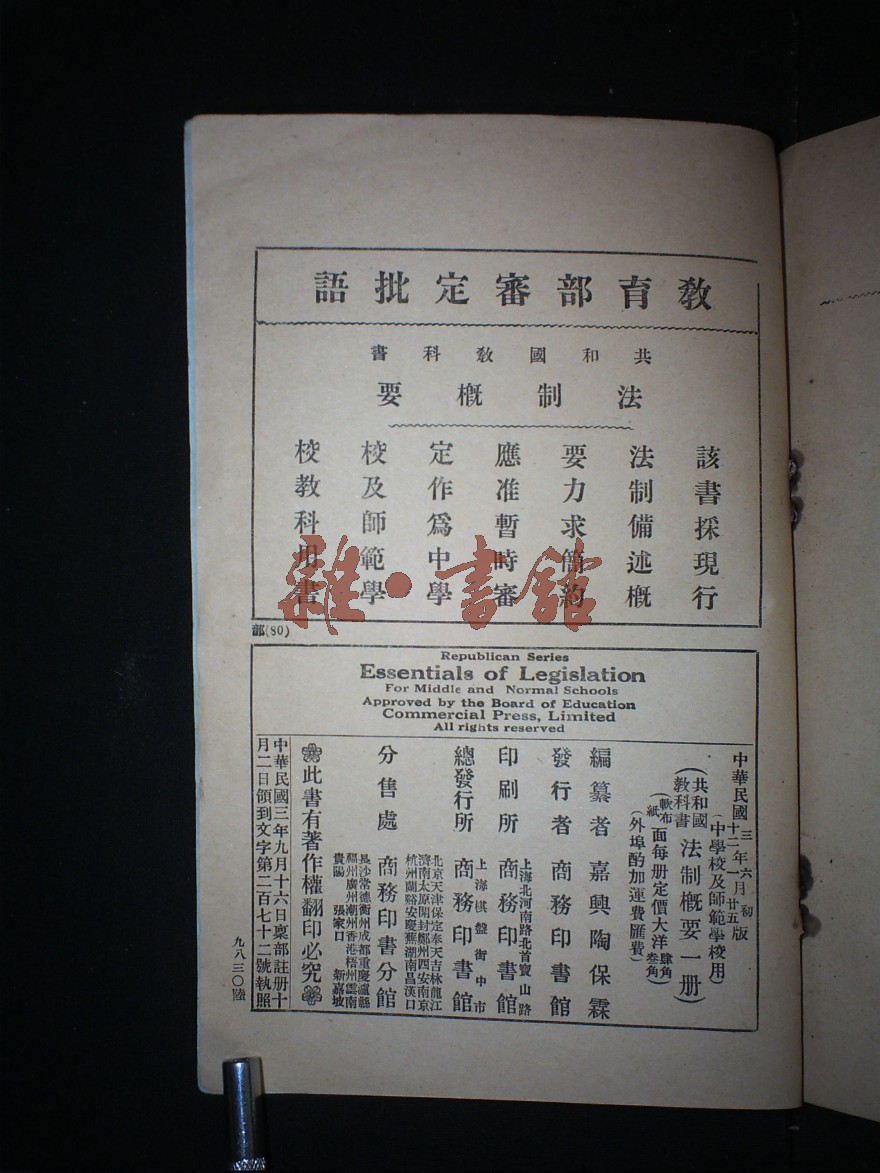 教育部審定批語
共和國教科書
法制概要
該書採現行
法制備述概
要力求簡約
應准暫時審
定作爲中學
校及師範學
校教科用書
部(80)
雜·書館
Republican Series
Essentials of Legislation
For Middle and Normal Schools
Approved by the Board of Education
Commercial Press, Limited
All rights reserved
中華民國三年六月初版
十二年一月廿五版
(中學校及師範學校用)
(共和國教科書 法制概要一册)
(軟布面每册定價大洋肆角
紙面每册定價大洋叁角)
(外埠酌加運費匯費)
編纂者 嘉興陶保霖
發行者 商務印書館
上海北河南路北首寶山路
印刷所 商務印書館
上海棋盤街中市
總發行所 商務印書館
北京天津保定奉天吉林龍江
濟南太原開封鄭州西安南京
杭州蘭谿安慶蕪湖南昌漢口
分售處 商務印書分館
長沙常德衡州成都重慶瀘縣
福州廣州潮州香港梧州雲南
貴陽 張家口 新嘉坡
此書有著作權翻印必究
中華民國三年九月十六日稟部註册十
月二日領到文字第二百七十二號執照
九八三〇陸